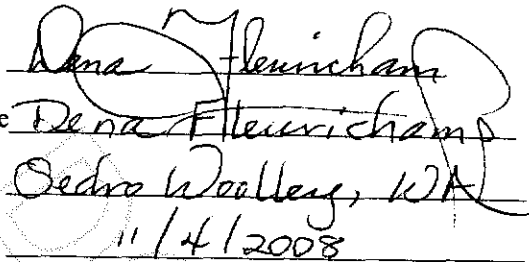 Dena Fleurichamp
e Dena Fleurichamp
Sedro Woolley, WA
11/4/2008